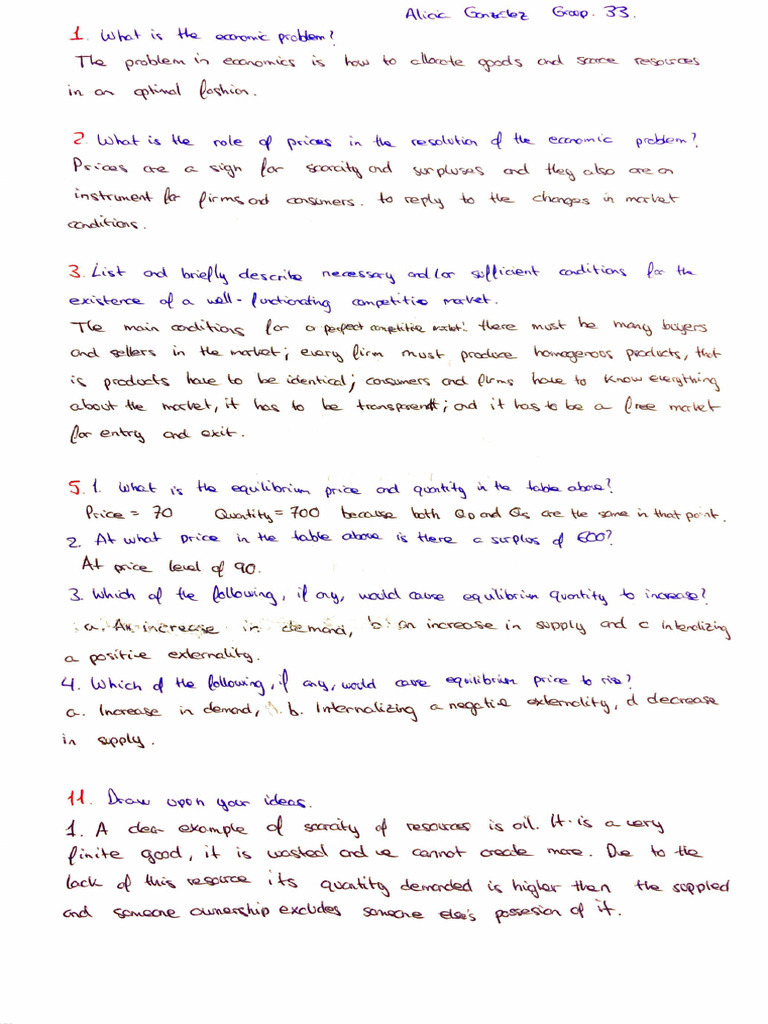 Alicia Gonzalez Group. 33.
1. What is the economic problem?
The problem in economics is how to allocate goods and scarce resources
in an optimal fashion.
2. What is the role of prices in the resolution of the economic problem?
Prices are a sign for scarcity and surpluses and they also are an
instrument for firms and consumers. to reply to the changes in market
conditions.
3. List and briefly describe necessary and/or sufficient conditions for the
existence of a well-functionating competitive market.
The main conditions for a perfect competitive market: there must be many buyers
and sellers in the market; every firm must produce homogenous products, that
is products have to be identical; consumers and firms have to know everything
about the market, it has to be transparent; and it has to be a free market
for entry and exit.
5. 1. What is the equilibrium price and quantity in the table above?
Price = 70 Quantity = 700 because both QD and Qs are the same in that point.
2. At what price in the table above is there a surplus of 600?
At price level of 90.
3. Which of the following, if any, would cause equilibrium quantity to increase?
a. An increase in demand, b. an increase in supply and c internalizing
a positive externality.
4. Which of the following, if any, would cause equilibrium price to rise?
a. Increase in demand, b. Internalizing a negative externality, d decrease
in supply.
11. Draw upon your ideas.
1. A clear example of scarcity of resources is oil. It is a very
finite good, it is wasted and we cannot create more. Due to the
lack of this resource its quantity demanded is higher then the supplied
and someone ownership excludes someone else's possesion of it.